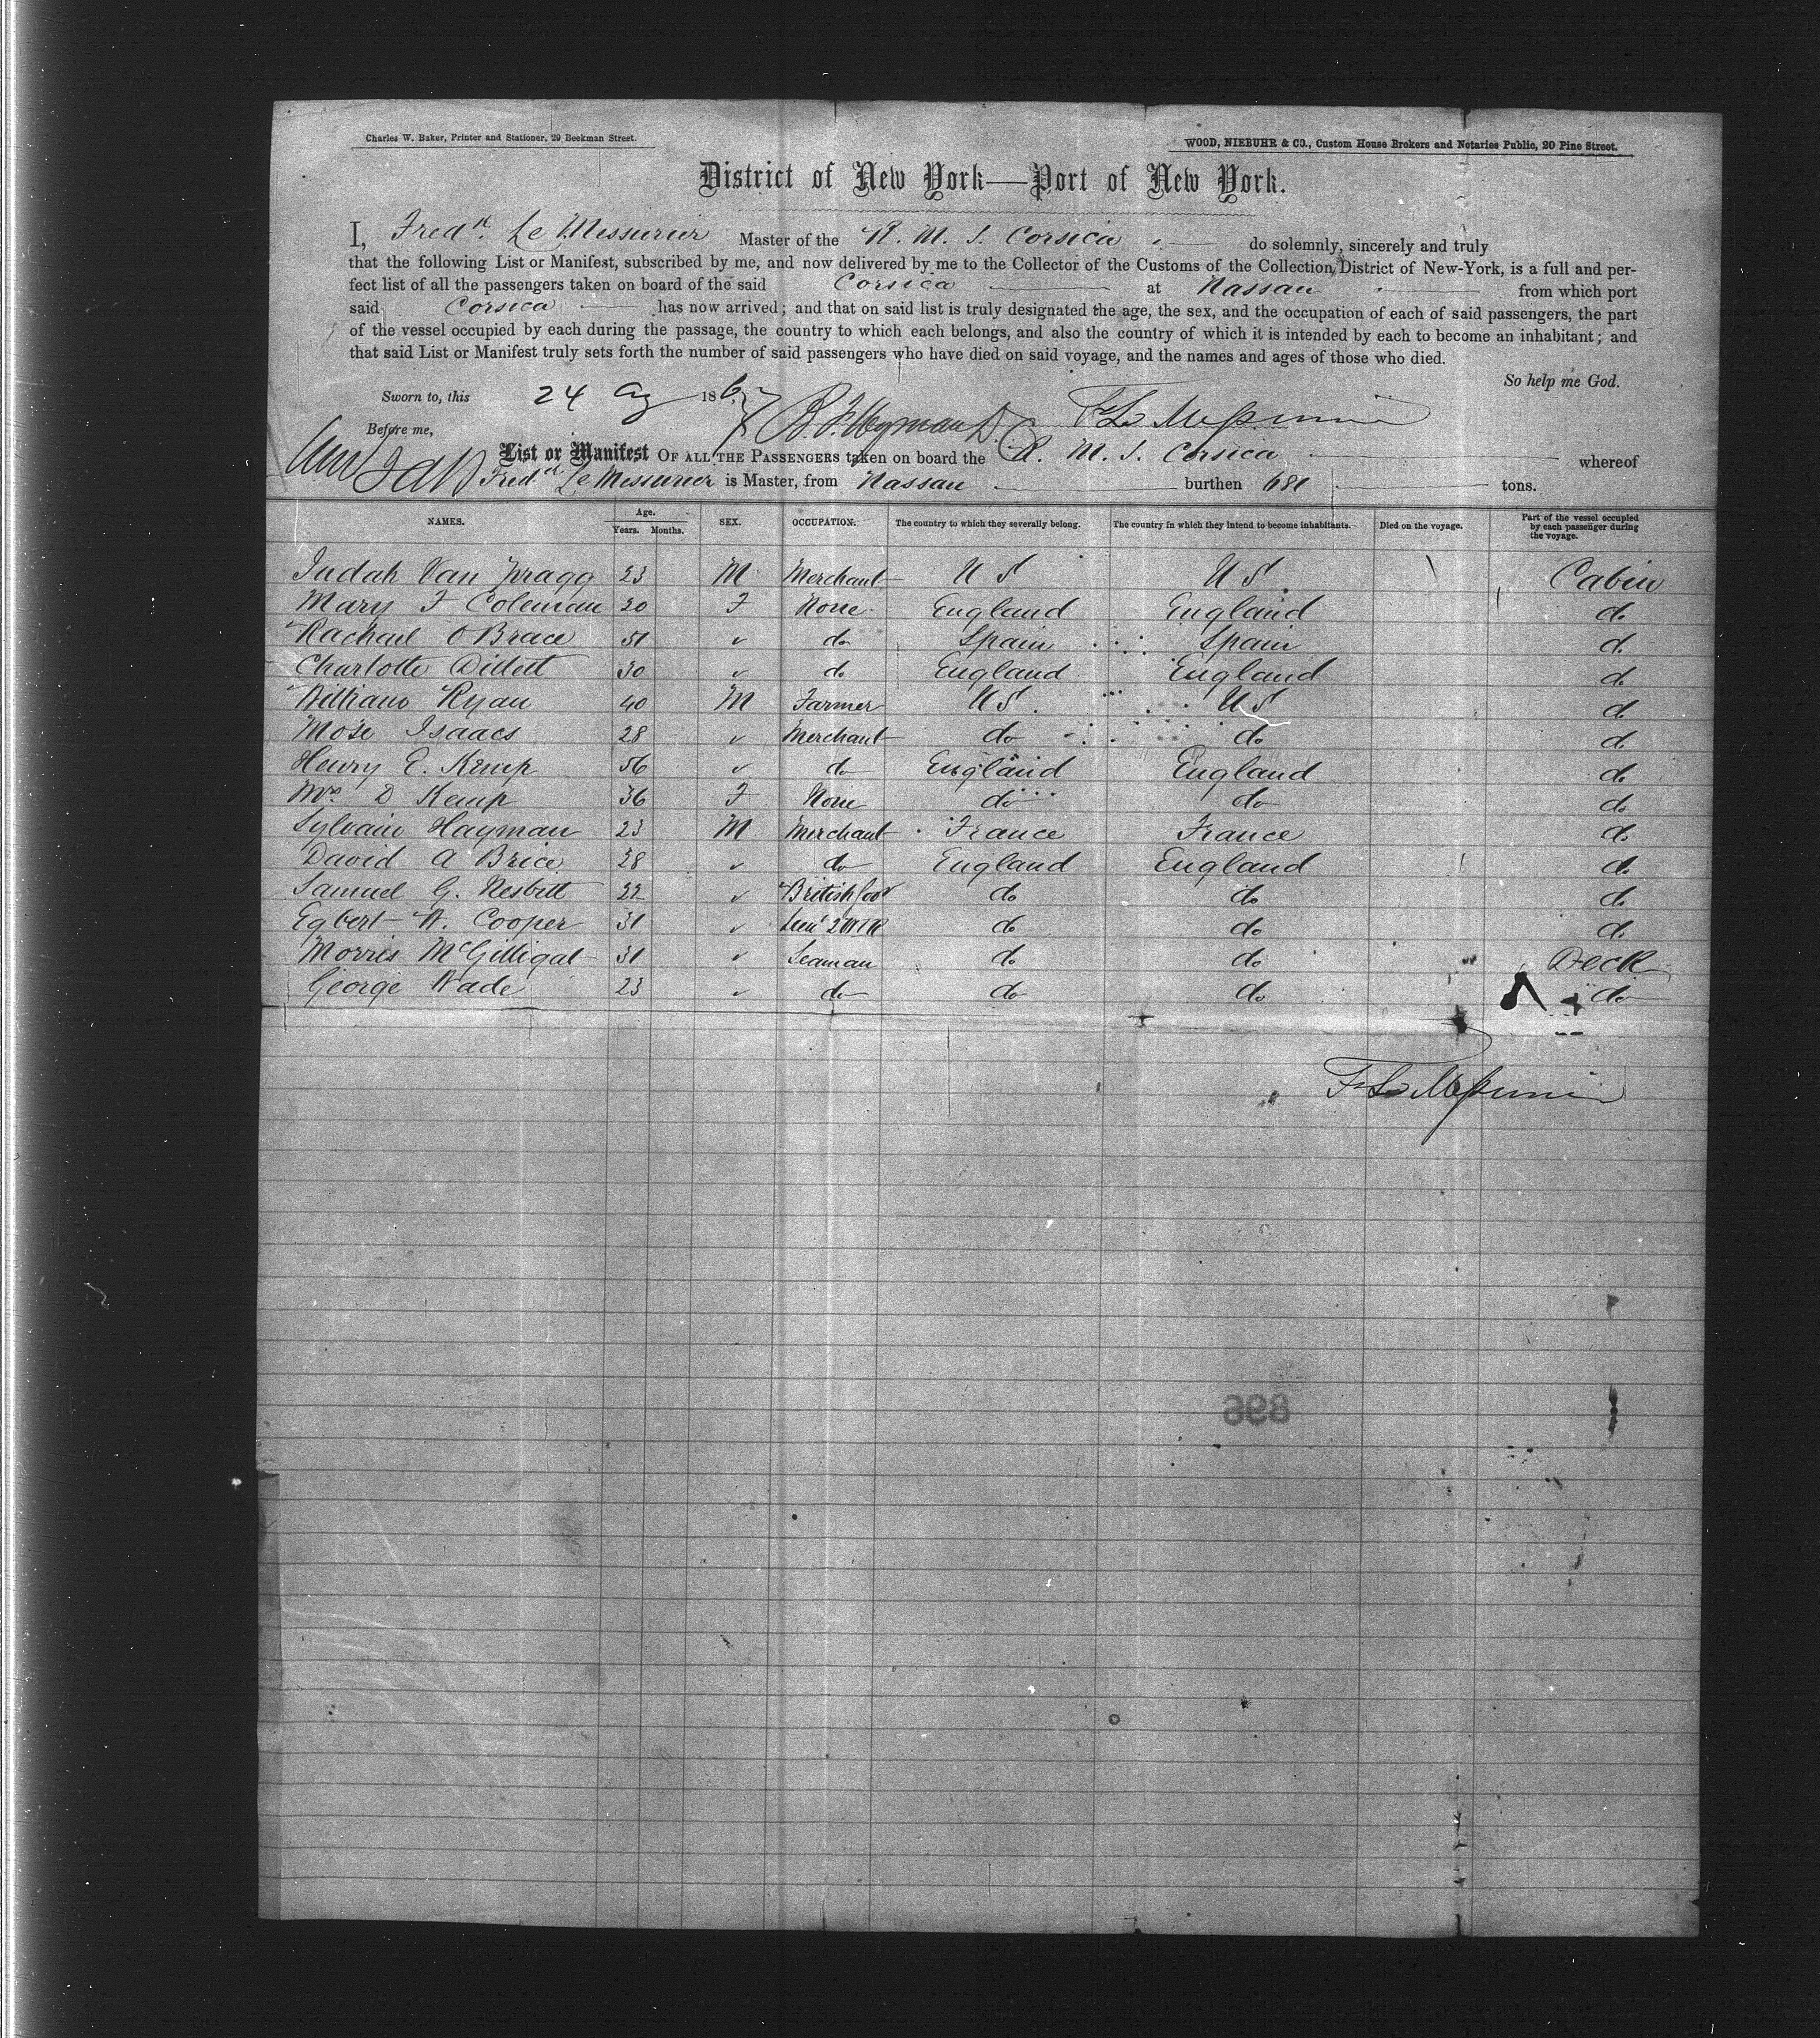 Charles W. Baker, Printer and Stationer, 29 Beekman Street.
WOOD, NIEBUHR & CO., Custom House Brokers and Notaries Public, 20 Pine Street.
District of New York—Port of New York.
I, Fredk. Le Messurier Master of the R. M. S. Corsica do solemnly, sincerely and truly
that the following List or Manifest, subscribed by me, and now delivered by me to the Collector of the Customs of the Collection District of New-York, is a full and per-
fect list of all the passengers taken on board of the said Corsica at Nassau from which port
said Corsica has now arrived; and that on said list is truly designated the age, the sex, and the occupation of each of said passengers, the part
of the vessel occupied by each during the passage, the country to which each belongs, and also the country of which it is intended by each to become an inhabitant; and
that said List or Manifest truly sets forth the number of said passengers who have died on said voyage, and the names and ages of those who died.
So help me God.
Sworn to, this 24 Aug 1867
Before me,
List or Manifest OF ALL THE PASSENGERS taken on board the R. M. S. Corsica whereof
Fredk Le Messurier is Master, from Nassau burthen 681 tons.
NAMES. Age. Years. Months. SEX. OCCUPATION. The country to which they severally belong. The country in which they intend to become inhabitants. Died on the voyage. Part of the vessel occupied by each passenger during the voyage.
Judah Van Pragg 23 M Merchant U S U S Cabin
Mary F Coleman 20 F None England England do
Rachael O Brace 51 ✓ do Spain Spain do
Charlotte Dillett 30 ✓ do England England do
William Ryan 40 M Farmer U S U S do
Mose Isaacs 28 ✓ Merchant do do do
Henry E. Kemp 56 ✓ do England England do
Mrs D Kemp 36 F None do do do
Sylvain Hayman 23 M Merchant France France do
David A Brice 28 ✓ do England England do
Samuel G. Nesbitt 22 ✓ British do do do
Egbert W. Cooper 31 ✓ do do do
Morris McGilligat 31 ✓ Seaman do do Deck
George Wade 23 ✓ do do do do
F Le Messurier
896